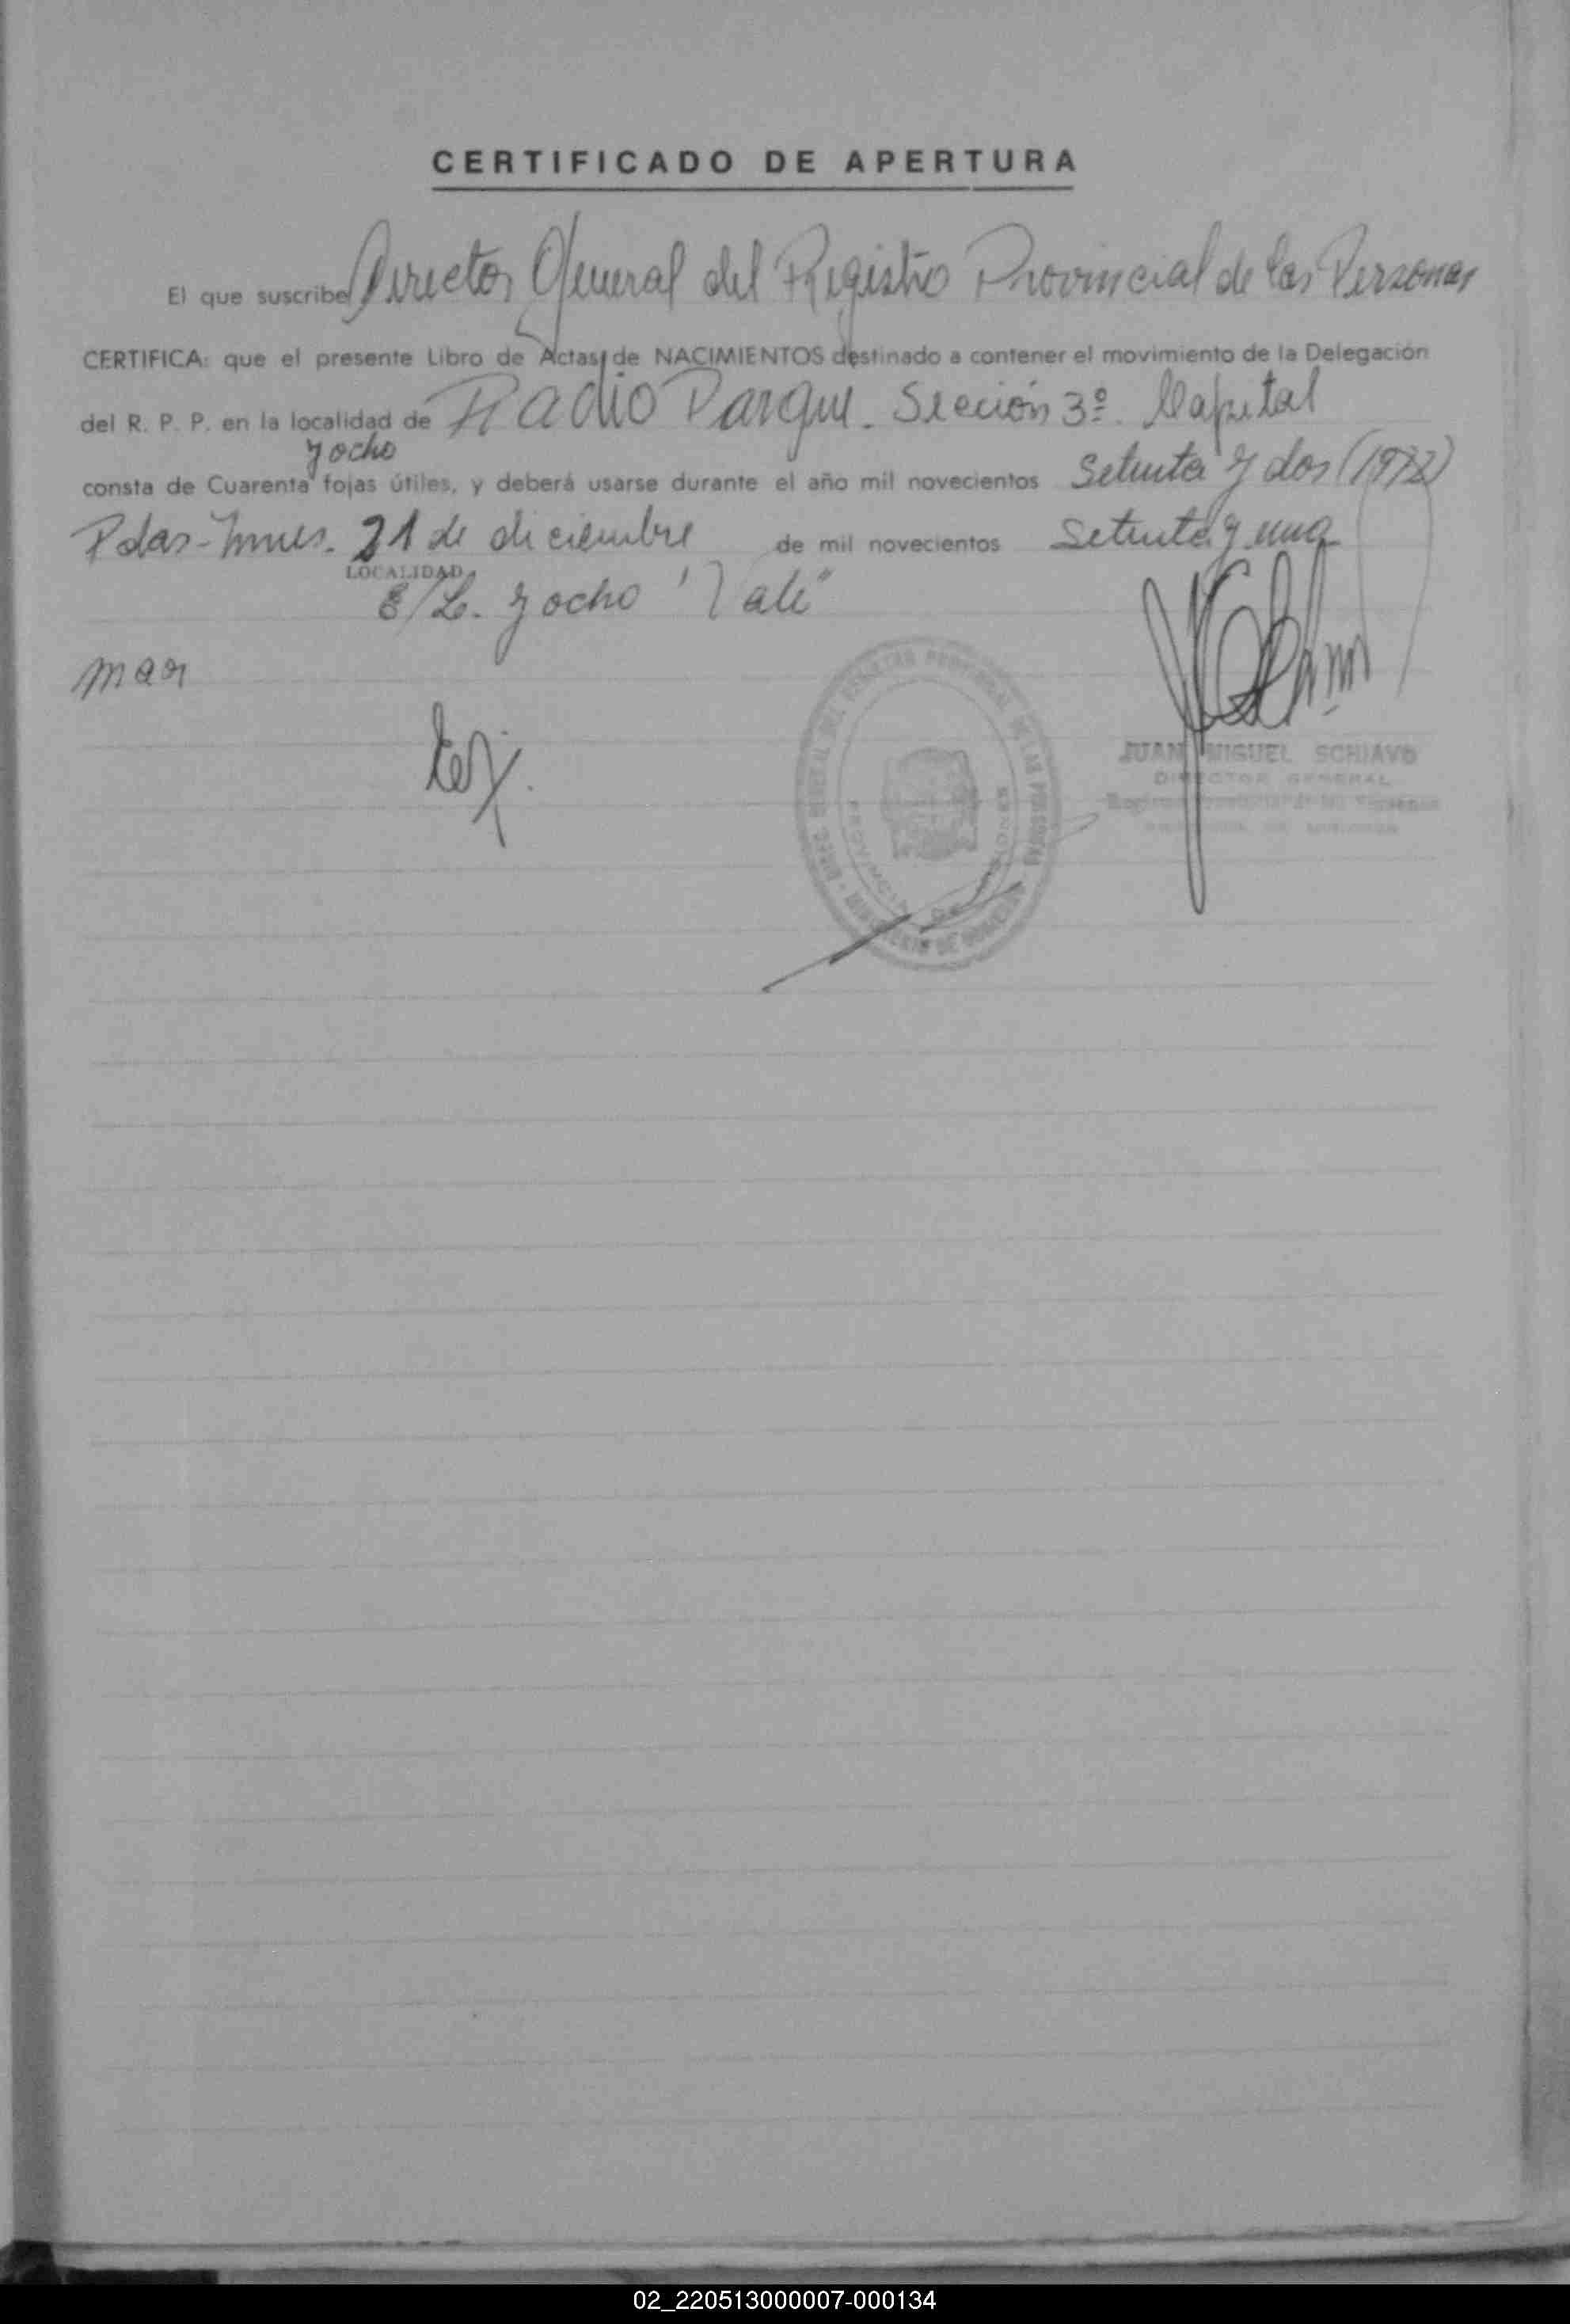 CERTIFICADO DE APERTURA
El que suscribe Director General del Registro Provincial de las Personas
CERTIFICA: que el presente Libro de Actas de NACIMIENTOS destinado a contener el movimiento de la Delegación
del R. P. P. en la localidad de Radio Parque. Sección 3º. Capital
y ocho
consta de Cuarenta fojas útiles, y deberá usarse durante el año mil novecientos Setenta y dos (1972)
Pdas-Mnes. 21 de diciembre de mil novecientos Setenta y uno
LOCALIDAD
E/L. y ocho "Vale"
mar
JUAN MIGUEL SCHIAVO
DIRECTOR GENERAL
Registro Provincial de las Personas
PROVINCIA DE MISIONES
02_220513000007-000134